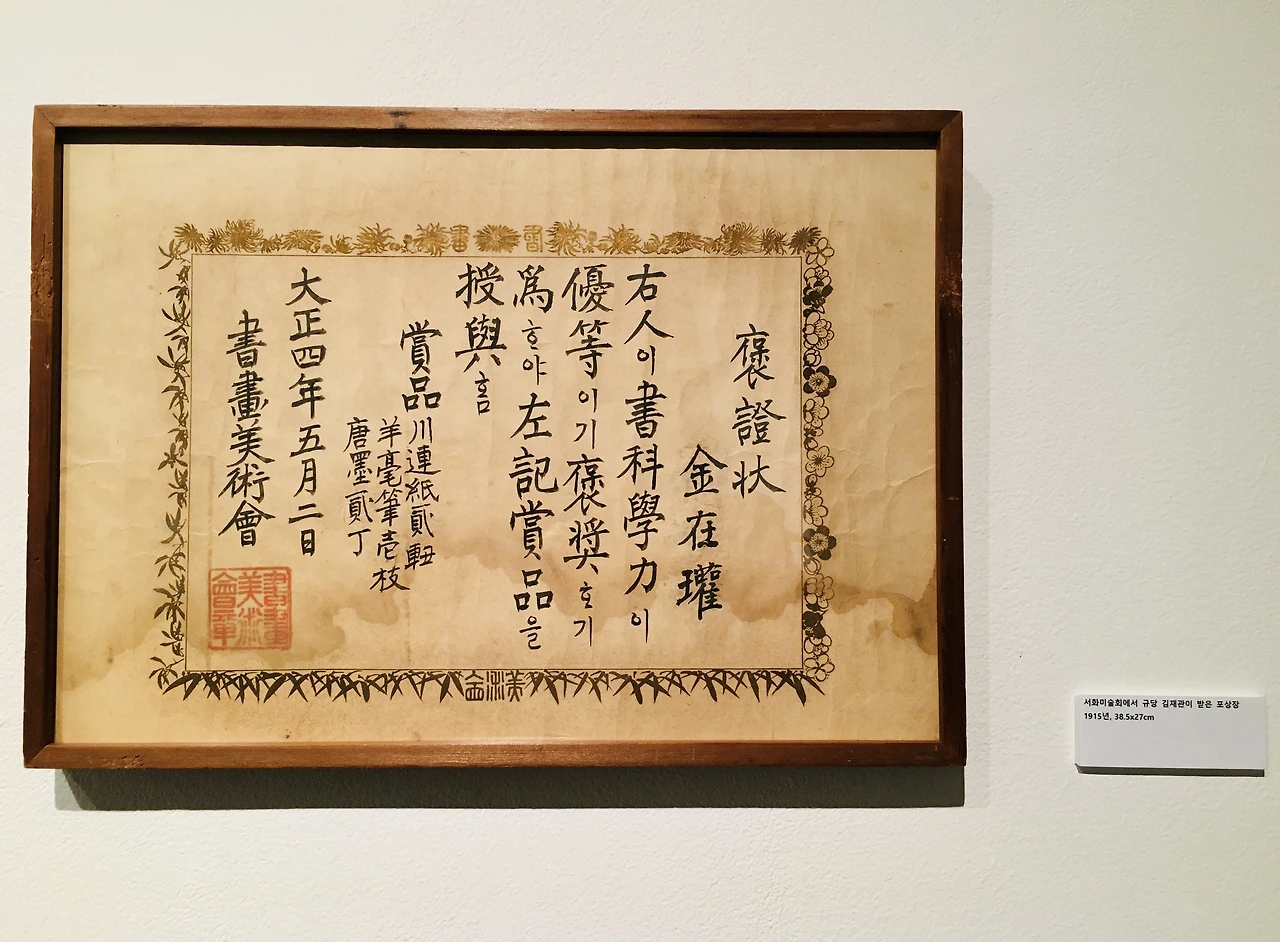 褒證狀
金在瓘
右人이書科學力이
優等이기褒奬호기
爲호야左記賞品을
授與홈
賞品
川連紙貳軸
羊毫筆壱枝
唐墨貳丁
大正四年五月二日
書畫美術會
書畫美術會章
書畫
美術會
서화미술회에서 규당 김재관이 받은 포상장
1915년, 38.5x27cm